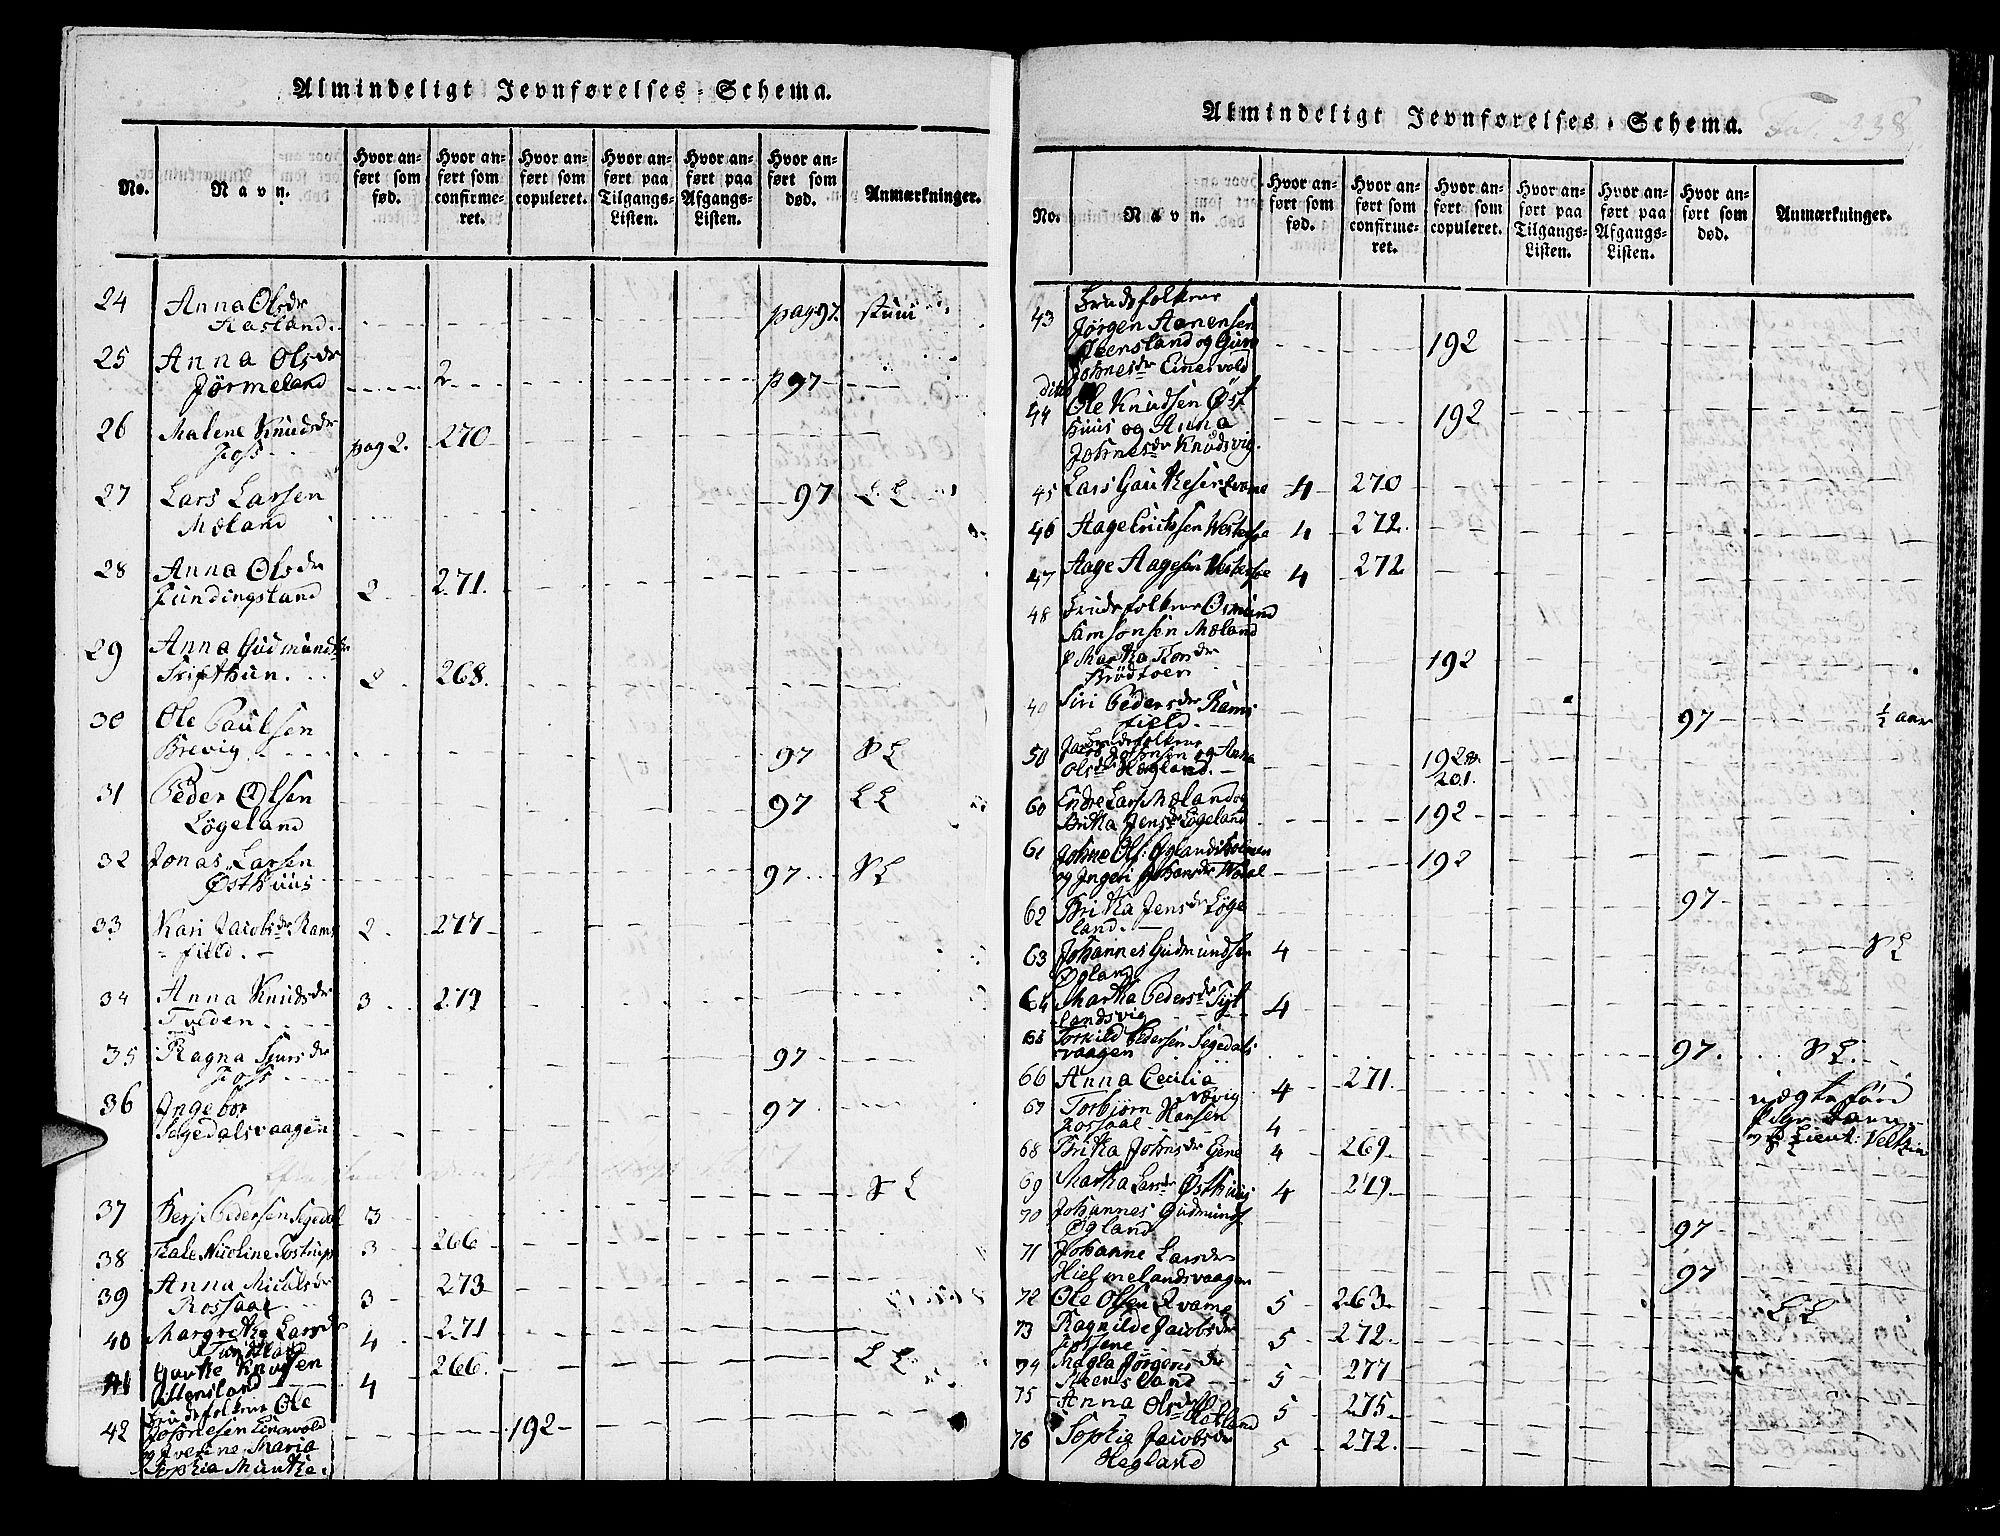 Almindeligt Jevnførelses-Schema.
No.
Navn.
Hvor anført som fød.
Hvor anført som confirmeret.
Hvor anført som copuleret.
Hvor anført paa Tilgangs-Listen.
Hvor anført paa Afgangs-Listen.
Hvor anført som død.
Anmærkninger.
24 Anna Olsdr pag 97.
25 Anna Olsdr
Jörmeland 2 p 97
26 Malene Knudsdr
Foss pag 2. 270
27 Lars Larsen 97 L L
Mæland
28 Anna Olsdr
Fundingsland 2 271.
29 Anna Gudmundsdr
Tripthun 2 268.
30 Ole Paulsen
Brevig 97 S L
31 Peder Olsen 97 L L
Løgeland
32 Jonas Larsen
Østhuus 97 S L
33 Kari Jacobsdr Rams 2 277
field.
34 Anna Knudsdr 3 279
Tveden
35 Ragna Sjursdr
Foss 97
36 Ingebor 97
Segedalsvaagen
37 Berje Pedersen Segedal 3 S L
38 Kale Nicoline Tostrup 3 266
39 Anna Micælsdr 273
Rossaae 3
40 Margretha Larsdr 4 271
Tundland
41 Gautke Knutsen 4 266 L L
42 Brudefolkene Ole
Johnesen Einervold 192
og Iverine Maria
Sophia Munthe.
Almindeligt Jevnførelses-Schema.
Fol. 238
No.
Navn.
Hvor anført som fød.
Hvor anført som confirmeret.
Hvor anført som copuleret.
Hvor anført paa Tilgangs-Listen.
Hvor anført paa Afgangs-Listen.
Hvor anført som død.
Anmærkninger.
43 Brudefolkene
Jørgen Aanensen
Steensland og Guro 192
Johnesdr Einervold
ditto
44 Ole Knudsen Øst
huus og Anna 192
Johnesdr Knudsvig.
45 Lars Gautkesen Qvame 4 270
46 Aage Ericksen Vestersøe 4 272.
47 Aage Aagesen Vestersøe 4 272
48 Brudefolkene Osmund
Samsonsen Mæland
& Martha 192
40 Siri Pedersdr Rams
field. 97 ½ aar
50 Brudefolkene
Jacob Johnsen og Anna 192 &
Olsdr Hægland. 201.
60 Endre Lars Mæland og
Britha Jensdr Løgeland 192
61 Johne Ols: Øglandsholmen
og Ingeri 192
62 Britha Jensdr Løge 97
land.
63 Johannes Gudmundsen 4 S L
Øgland
64 Martha Pedersdr Tyt
landsvig 4
65 Torkild Pedersen Segedals
vaagen 97. S L.
66 Anna Cecilia 4 271.
Vævig
67 Torbjørn Hansen
Fossaae 4
68 Britha Johnsdr Gjene 4 269.
69 Martha Larsdr Østhuus 4 279
70 Johannes Gudmunds
Øgland 97
71 Johanne Larsdr
Hielmelandsvaagen 97
72 Ole Olsen Qvame 5 263. L L
73 Ragnilde Jacobsdr
Fossene 5 272.
74 Magla Jørgensdr
Steensland 5 277
75 Anna Olsdr
Hetland 5 275
76 Sophie Jacobsdr 5 272.
Hegland